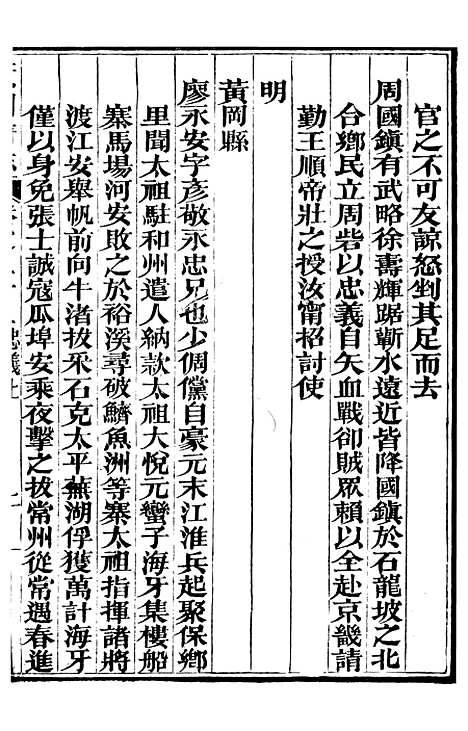 官之不可友諒怒剉其足而去
周國鎮有武略徐壽輝踞蘄水遠近皆降國鎮於石龍坡之北
合鄉民立周砦以忠義自矢血戰卻賊眾賴以全赴京畿請
勤王順帝壯之授汝甯招討使
明
黃岡縣
廖永安字彥敬永忠兄也少倜儻自豪元末江淮兵起聚保鄉
里聞太祖駐和州遣人納款太祖大悅元蠻子海牙集樓船
寨馬場河安敗之於裕溪尋破鱭魚洲等寨太祖指揮諸將
渡江安舉帆前向牛渚拔采石克太平蕪湖俘獲萬計海牙
僅以身免張士誠寇瓜埠安乘夜擊之拔常州從常遇春進
忠義